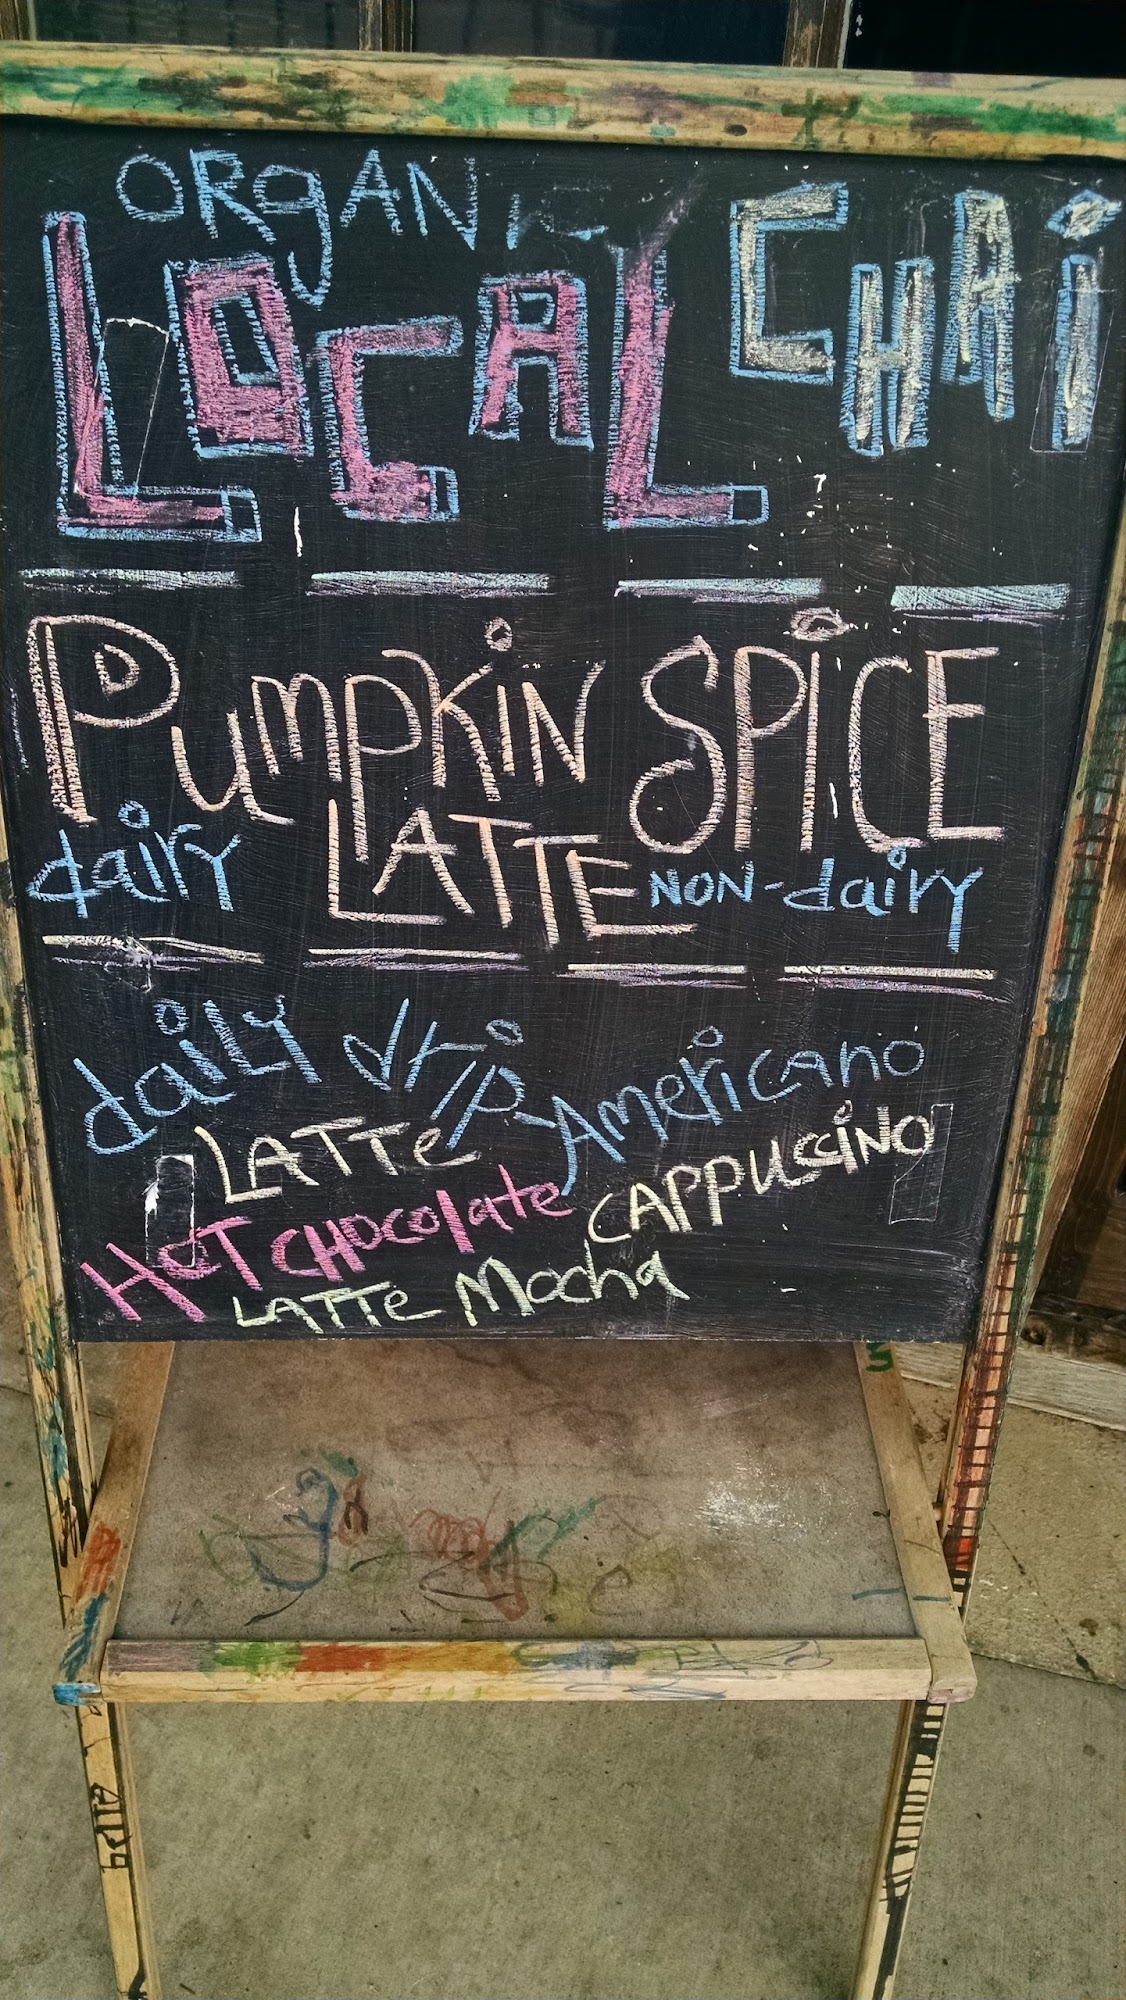 ORgANic
LOCAL CHAi
PumpKiN SPiCE
LATTE
dairy NON-dairy
daiLy drip Americano
LATTe CAPPUSSiNO
HOT CHOcolate
LATTe Mocha